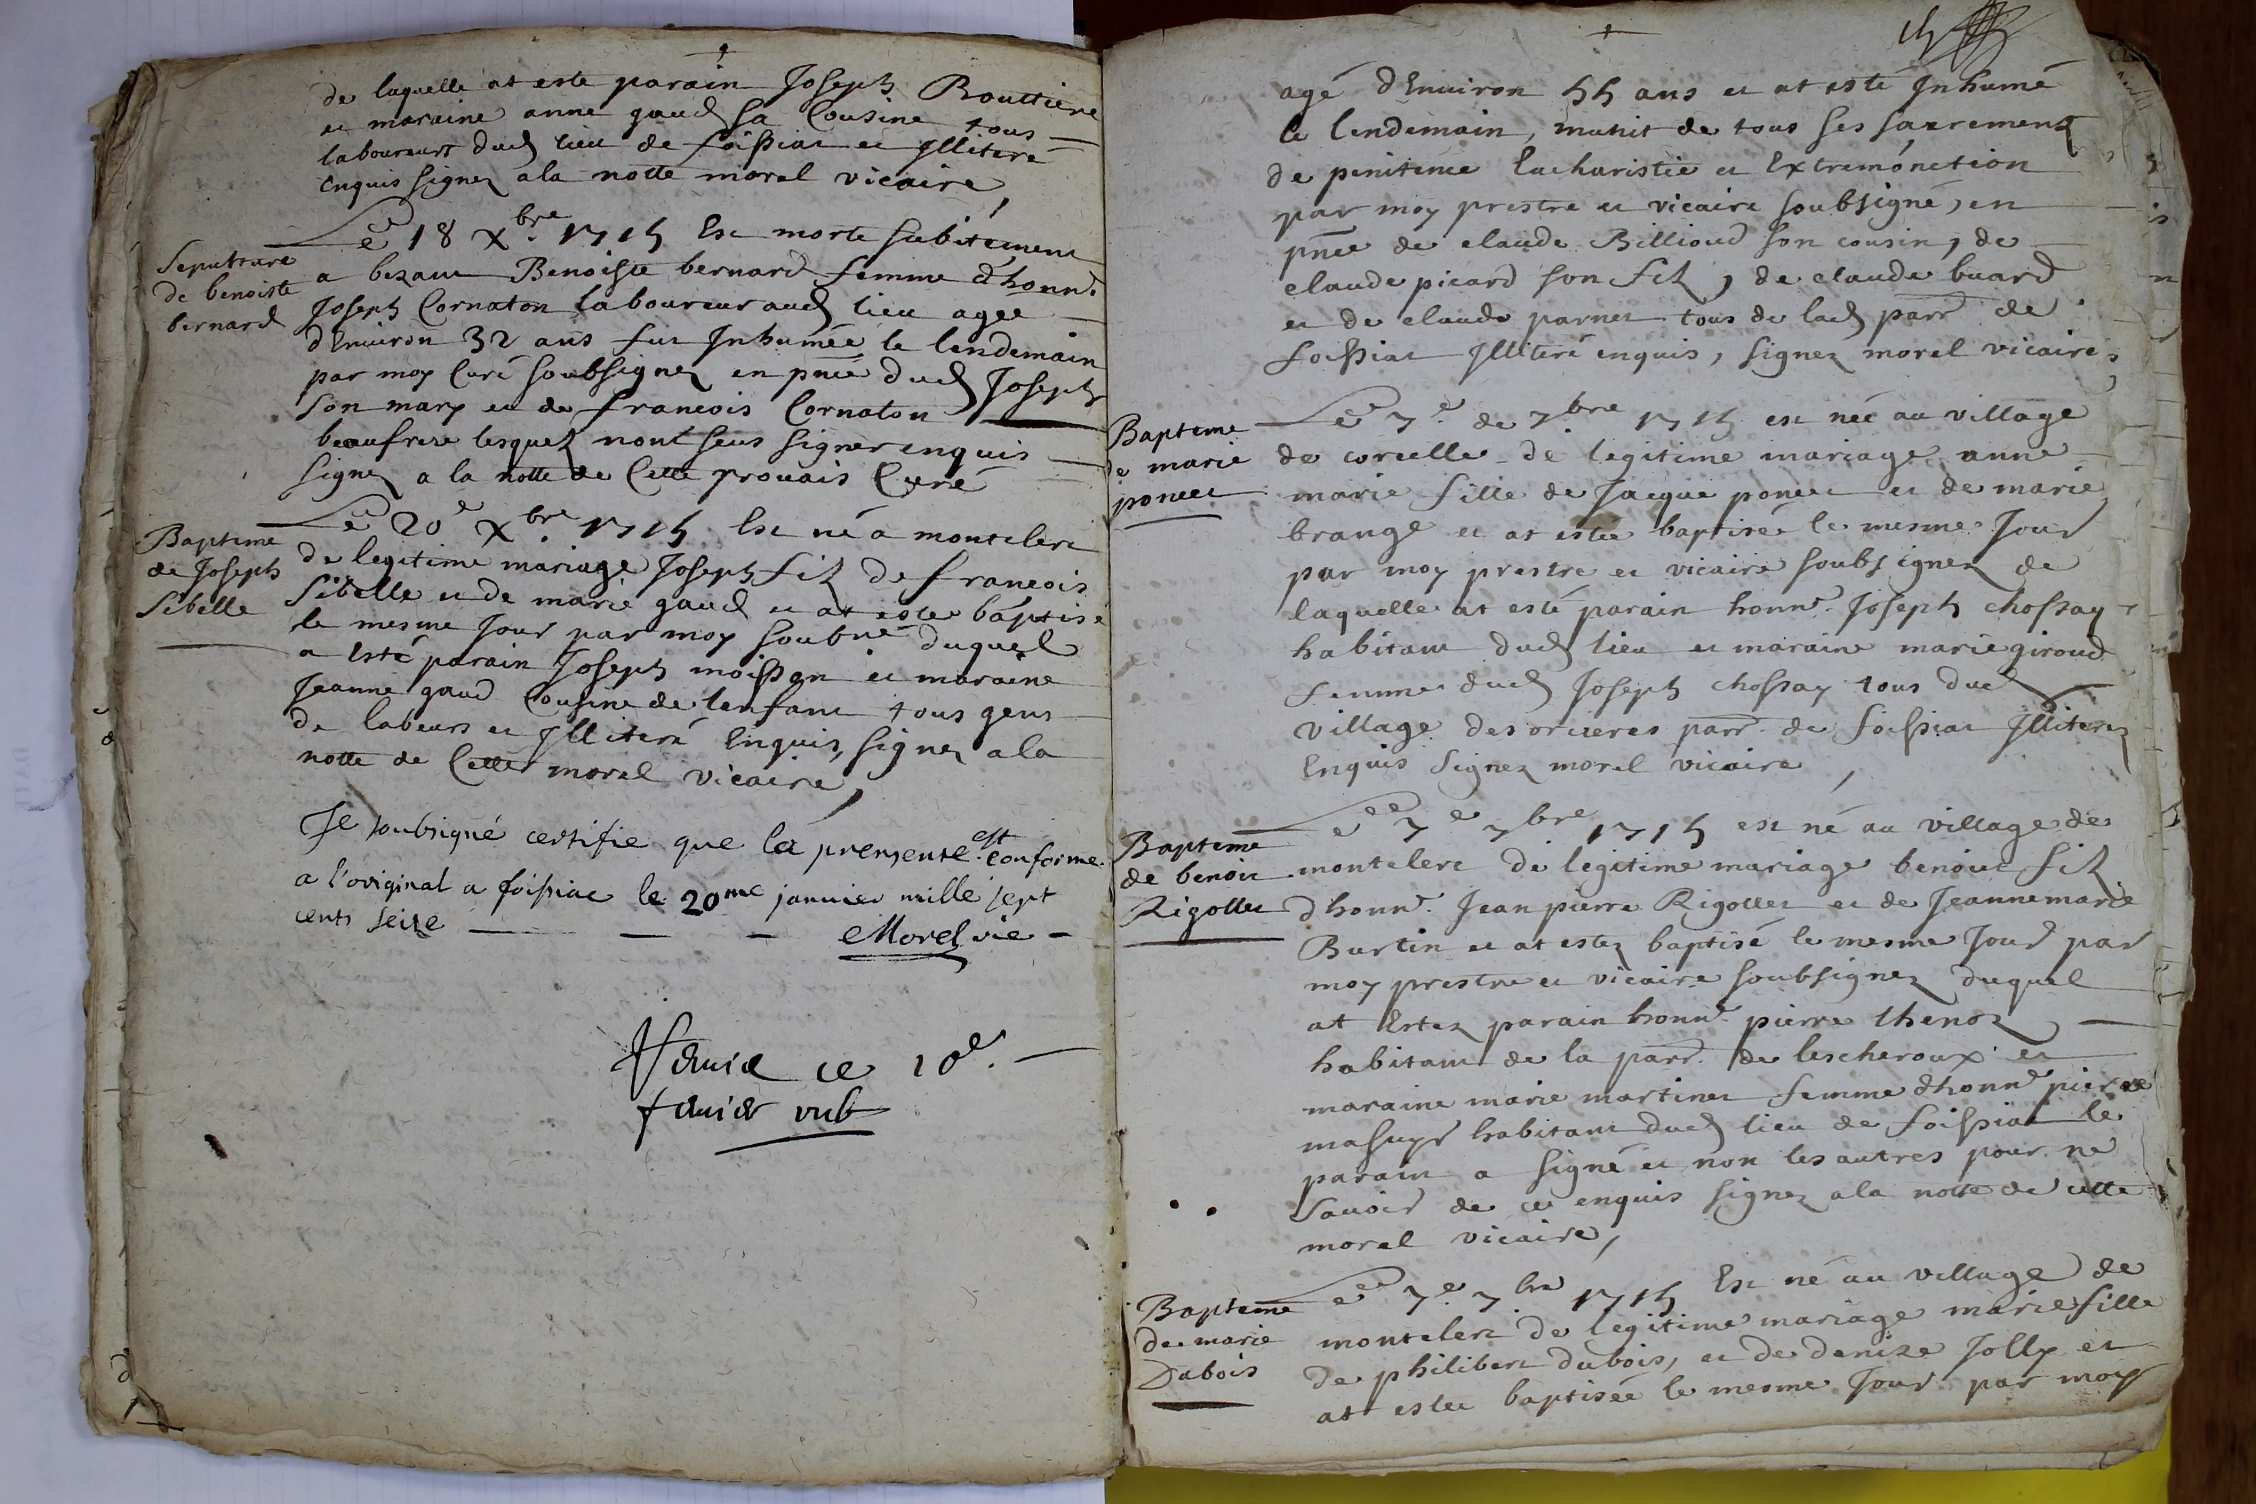 de laquelle at este parain Joseph Bouttiere
et maraine anne gaud sa Cousine tous
laboureurs dud lieu de foissiat et Jlliteré
enquis signez a la notte morel vicaire,
Sepulture
de benoiste
bernard
Le 18 Xbre 1715 Est morte subitement
a bezam Benoiste bernard femme d'honn.
Joseph Cornaton laboureur aud lieu agee
d'Environ 32 ans fut Inhumée le lendemain
par moy Curé soubsignez en pnce dud Joseph
son mary et de francois Cornaton
beaufrere lesquelz nont seus signer enquis
signez a la notte de Cette prouais Curé
Bapteme
de Joseph
Sibelle
Le 20e Xbre 1715 Est né a montclerc
de legitime mariage Joseph filz de francois
Sibelle et de marie gaud et at este baptisé
le mesme Jour par moy soubné duquel
a esté parain Joseph moisson et maraine
Jeanne gaud Cousine de lenfant tous gens
de labeurs et Jlliteré Enquis, signez a la
notte de Cette morel vicaire,
Je soubsigné certifie que la presente est conforme
a l'original a foissiac le 20me janvier mille sept
cents seize
Morel vic
10e.
agé d'Environ 55 ans et at esté Inhumé
le lendemain, munit de tous ses sacremenz
de penitence Eucharistie et Extremónction
par moy prestre et vicaire soubsigné, en
pnce de claude Billioud son cousin, de
claude picard son filz, de claude buard
et de claude parnet tous de lad parr de
foissiat Jlliteré enquis, signez morel vicaire,
Bapteme
de marie
poncet
Le 7e de 7bre 1715 est née au village
de corcelle de legitime mariage anne
marie fille de Jacque poncet et de marie
brange et at estée baptisée le mesme Jour
par moy prestre et vicaire soubsignez de
laquelle at esté parain honne. Joseph chossay
habitant dud lieu et maraine marie giroud
femme dud Joseph chossay tous dud
village des orcieres parr de foissiat Jlliterez
Enquis signez morel vicaire,
Bapteme
de benoit
Rigollet
Le 7e 7bre 1715 est né au village de
montclerc de legitime mariage benoict filz
d'honne. Jean pierre Rigollet et de Jeanne marie
Burtin et at estez baptisé le mesme Jour par
moy prestre et vicaire soubsignez duquel
at Estez parain honne pierre thenoz
habitant de la parr. de lescheroux et
maraine marie martinet femme d'honne pierre
masuyr habitant dud lieu de foissiat le
parain a signé et non les autres pour ne
savoir de ce enquis signez a la notte de cette
morel vicaire,
Bapteme
de marie
Dubois
Le 7e 7bre 1715 Est né au village de
montclerc de legitime mariage marie fille
de philibert dubois, et de denize Jolly et
at estee baptisée le mesme Jour par moy